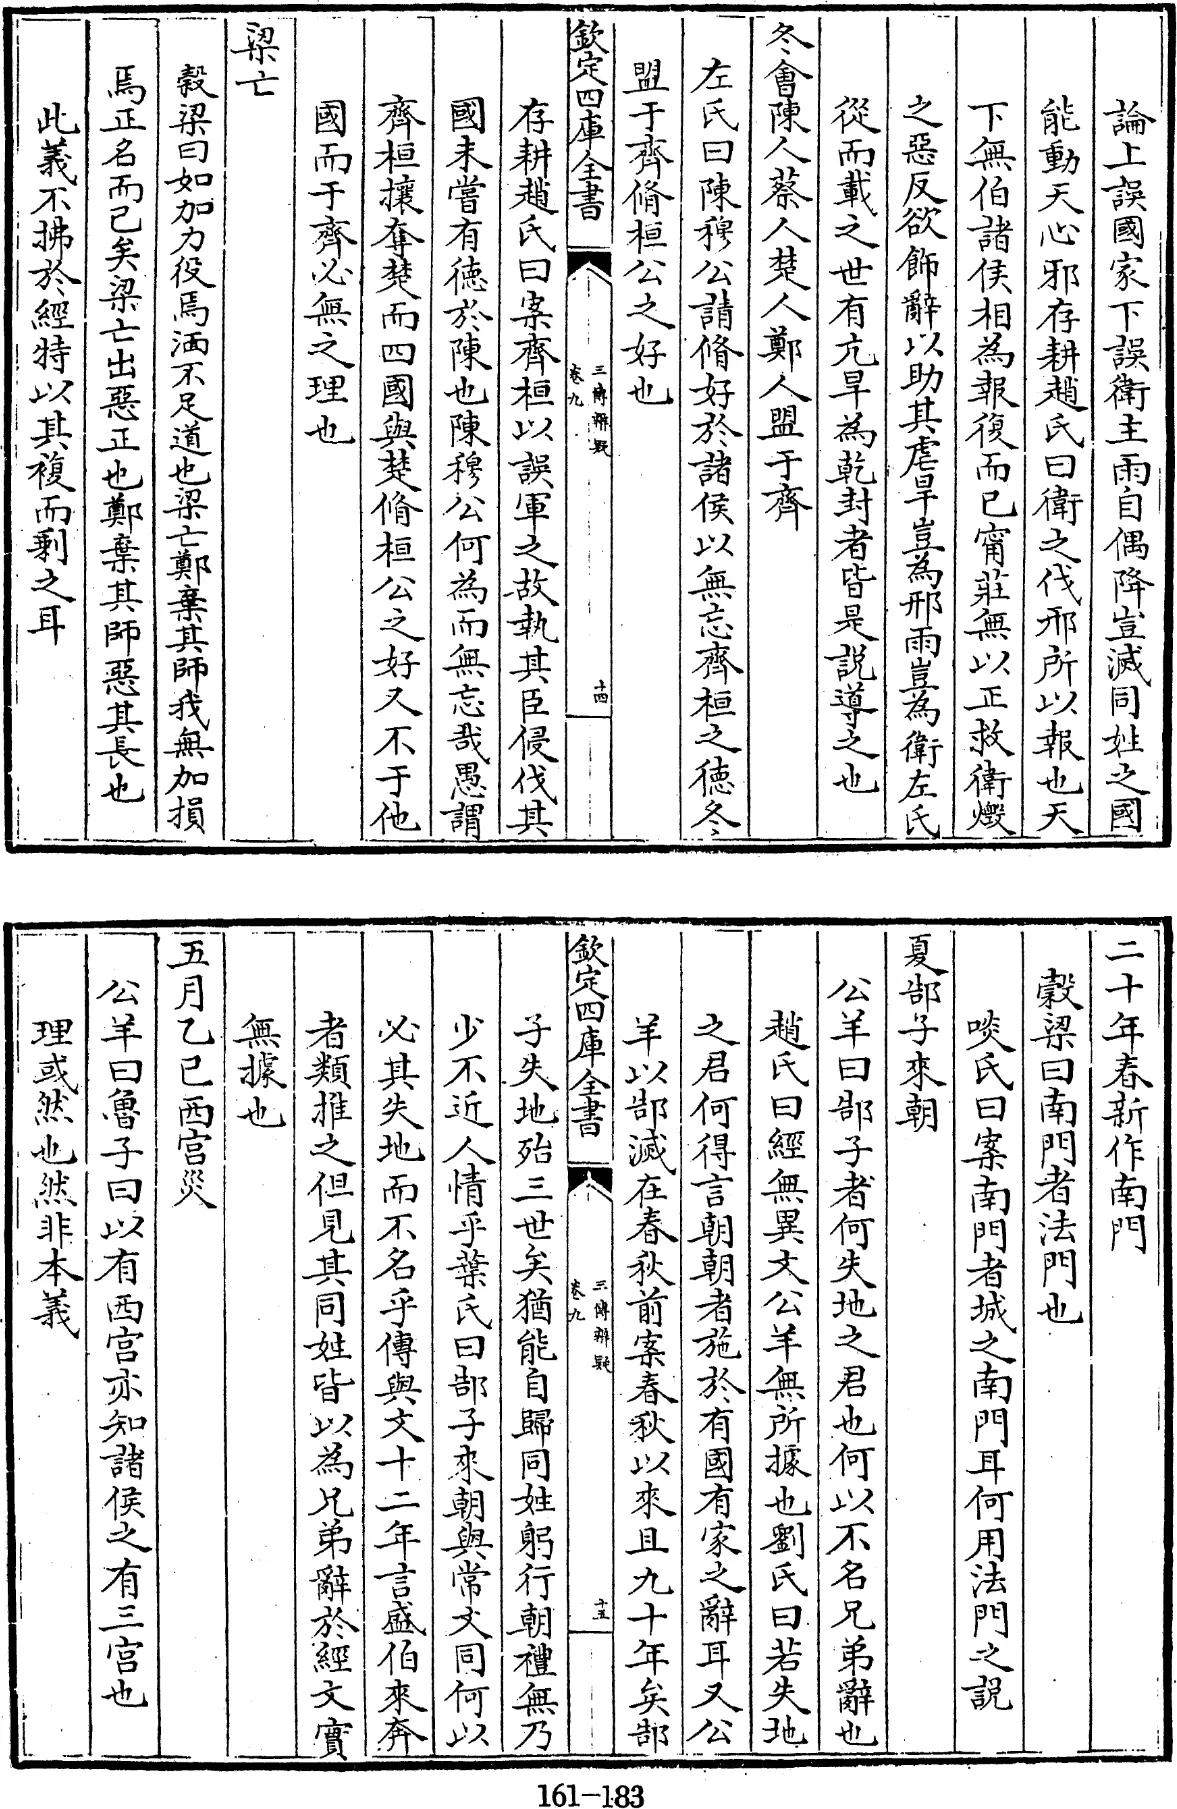 論上誤國家下誤衛主雨自偶降豈滅同姓之國
能動天心邪存耕趙氏曰衛之伐邢所以報也天
下無伯諸侯相為報復而已甯莊無以正救衛燬
之惡反欲飾辭以助其虐旱豈為邢雨豈為衛左氏
從而載之世有亢旱為乾封者皆是説導之也
冬會陳人蔡人楚人鄭人盟于齊
左氏曰陳穆公請脩好於諸侯以無忘齊桓之徳冬
盟于齊脩桓公之好也
欽定四庫全書
三傳辨疑
卷九
十四
存耕趙氏曰案齊桓以誤軍之故執其臣侵伐其
國未嘗有徳於陳也陳穆公何為而無忘哉愚謂
齊桓攘奪楚而四國與楚脩桓公之好又不于他
國而于齊必無之理也
梁亡
穀梁曰如加力役焉湎不足道也梁亡鄭棄其師我無加損
焉正名而已矣梁亡出惡正也鄭棄其師惡其長也
此義不拂於經特以其複而剩之耳
二十年春新作南門
穀梁曰南門者法門也
啖氏曰案南門者城之南門耳何用法門之説
夏郜子來朝
公羊曰郜子者何失地之君也何以不名兄弟辭也
趙氏曰經無異文公羊無所據也劉氏曰若失地
之君何得言朝朝者施於有國有家之辭耳又公
羊以郜滅在春秋前案春秋以來且九十年矣郜
欽定四庫全書
三傳辨疑
卷九
十五
子失地殆三世矣猶能自歸同姓躬行朝禮無乃
少不近人情乎葉氏曰郜子來朝與常文同何以
必其失地而不名乎傳與文十二年言盛伯來奔
者類推之但見其同姓皆以為兄弟辭於經文實
無據也
五月乙巳西宫災
公羊曰魯子曰以有西宫亦知諸侯之有三宫也
理或然也然非本義
161-183